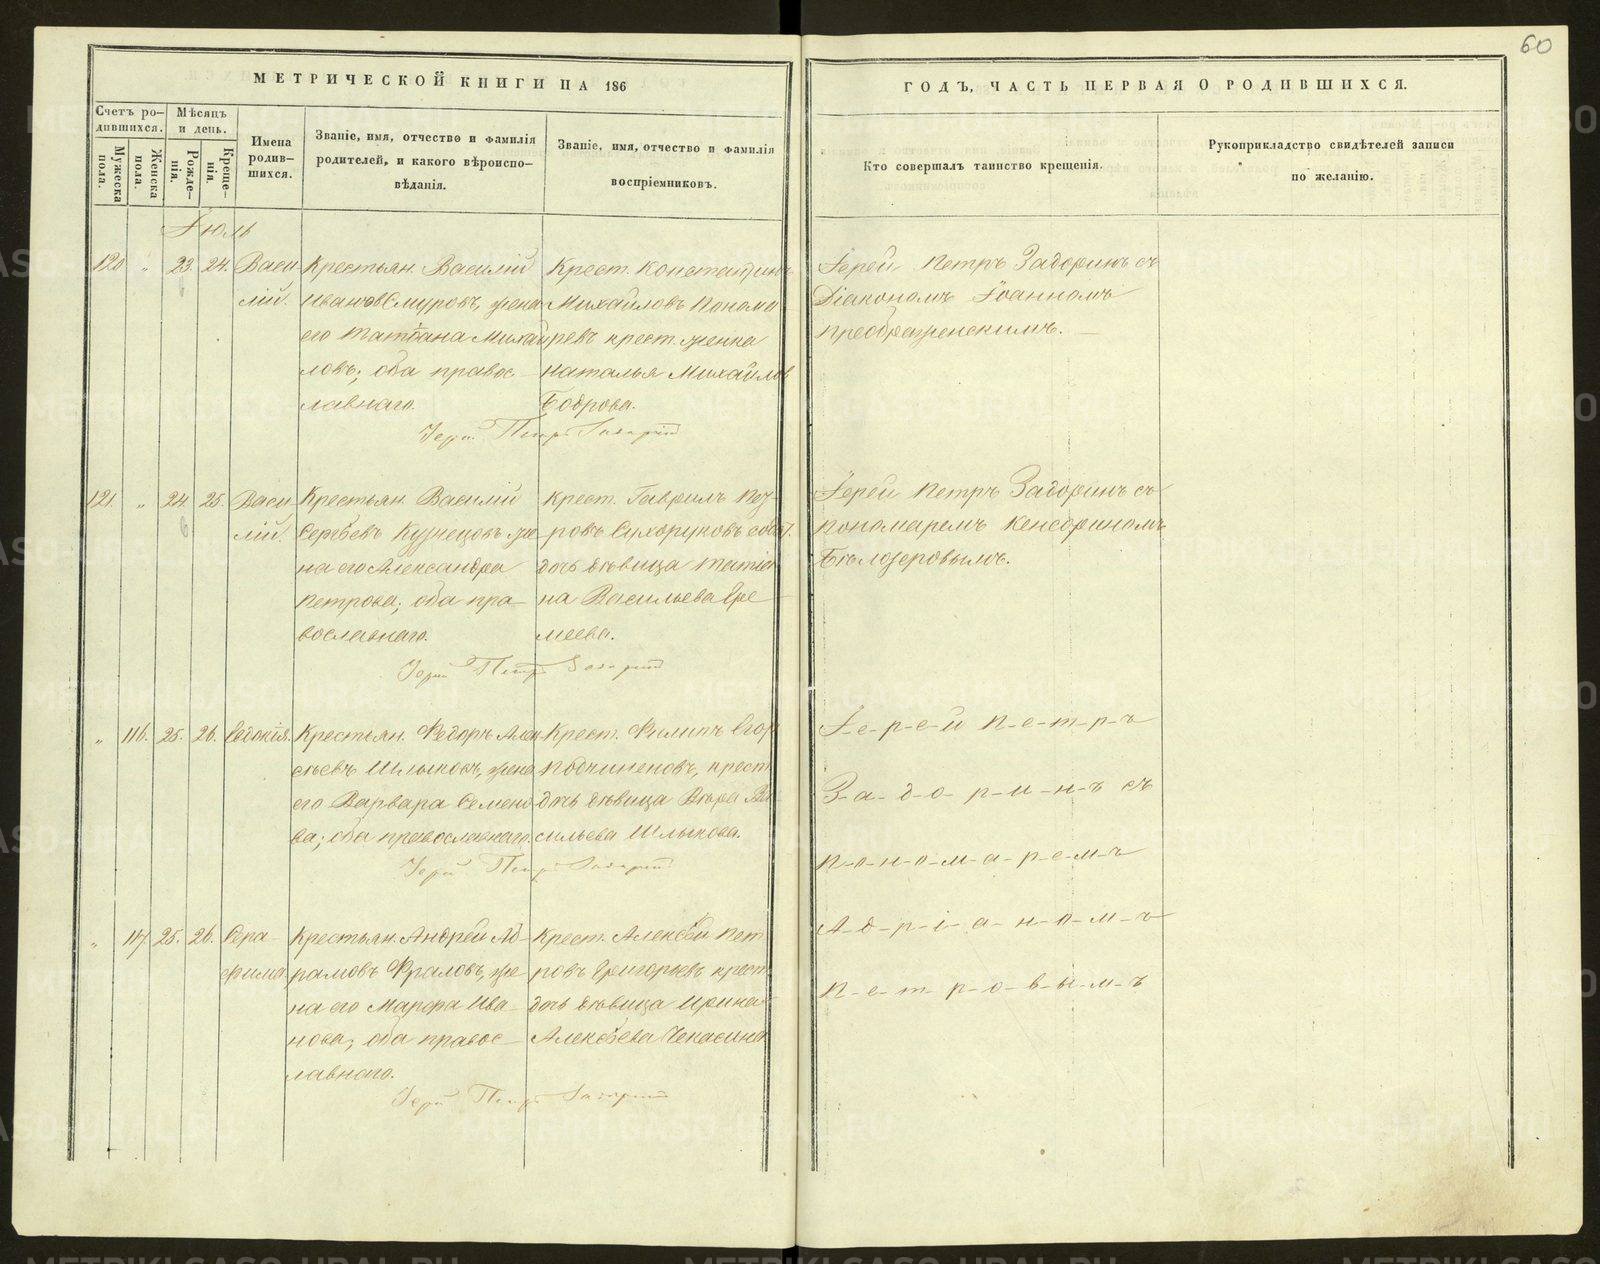 60
МЕТРИЧЕСКОЙ КНИГИ НА 186
ГОДЪ, ЧАСТЬ ПЕРВАЯ О РОДИВШИХСЯ.
Счетъ ро-
дившихся.
Мужеска
пола.
Женска
пола.
Мѣсяцъ
и день.
Рожде-
нія.
Креще-
нія.
Имена
родив-
шихся.
Званіе, имя, отчество и фамилія
родителей, и какого вѣроиспо-
вѣданія.
Званіе, имя, отчество и фамилія
воспріемниковъ.
Кто совершалъ таинство крещенія.
Рукоприкладство свидѣтелей записи
по желанію.
Іюль
120 „ 23. 24. Васи
лій.
Крестьян. Василій
Ивановъ Смуровъ, жена
его Татіана Михай
ловъ; оба правос
лавнаго.
Крест. Константинъ
Михайловъ Понома
ревъ крест. женка
Наталья Михайлов
Боброва.
Іерей Петръ Задоринъ съ
Діакономъ Іоанномъ
Преображенскимъ.
Іерей Петръ Задоринъ
121. „ 24. 25. Васи
лій.
Крестьян. Василій
Сергѣевъ Кузнецовъ же
на его Александра
Петрова; оба пра
вославнаго.
Крест. Гаврилъ Пет
ровъ Сухоруковъ
дочь дѣвица Татіа
на Васильева Ере
меева.
Іерей Петръ Задоринъ съ
пономаремъ Кенсориномъ
Бѣлозеровымъ.
Іерей Петръ Задоринъ
„ 116. 25. 26. Евдокія.
Крестьян. Ѳедоръ Алек
сѣевъ Шлыковъ, жена
его Варвара Семено
ва; оба православнаго.
Крест. Филипъ Егор
крест.
дочь дѣвица Вѣра Ва
сильева Шлыкова.
І-е-р-е-й П-е-т-р-ъ
З-а-д-о-р-и-н-ъ съ
п-о-н-о-м-а-р-е-м-ъ
А-д-р-і-а-н-о-м-ъ
П-е-т-р-о-в-ы-м-ъ
Іерей Петръ Задоринъ
„ 117 25. 26. Сера
фима
Крестьян. Андрей Аб
рамовъ Фраловъ, же
на его Марфа Ива
нова; оба правос
лавнаго.
Крест. Алексѣй Пет
ровъ Григорьевъ крест.
дочь дѣвица Ирина
Алексѣева Чекасина
Іерей Петръ Задоринъ
METRIKI.GASO-URAL.RU